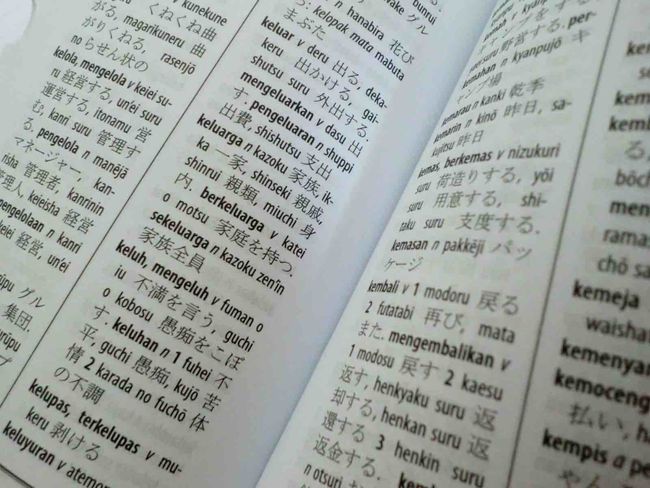 v kunekune
くねくね曲
がる, magarikuneru 曲
がりくねる, rasenjō
no らせん状の
kelola, mengelola v keiei su-
ru 経営する, un'ei suru
運営する, itonamu 営
む, kanri suru 管理す
る. pengelola n manējā
マネージャー, kan-
risha 管理者, kanrinin
管理人, keieisha 経営
pengelolaan n kanri
keiei 経営, un'ei
グル
集団,
n hanabira 花び
kelopak mata mabuta
まぶた
keluar v deru 出る, deka-
keru 出かける, gai-
shutsu suru 外出する.
mengeluarkan v dasu 出
す. pengeluaran n shuppi
出費, shishutsu 支出
keluarga n kazoku 家族, ik-
ka 一家, shinseki 親戚,
shinrui 親類, miuchi 身
内. berkeluarga v katei
o motsu 家庭を持つ.
sekeluarga n kazoku zen'in
家族全員
keluh, mengeluh v fuman o
iu 不満を言う, guchi
o kobosu 愚痴をこぼ
す. keluhan n 1 fuhei 不
平, guchi 愚痴, kujō 苦
情 2 karada no fuchō 体
の不調
kelupas, terkelupas v mu-
keru 剥ける
keluyuran v
suru 野営する. per-
kemahan n kyanpujō キ
ャンプ場
kemarau n kanki 乾季
kemarin n kinō 昨日, sa-
kujitsu 昨日
kemas, berkemas v nizukuri
suru 荷造りする, yōi
suru 用意する, shi-
taku suru 支度する.
kemasan n pakkēji パッ
ケージ
kembali v 1 modoru 戻る
2 futatabi 再び, mata
また. mengembalikan v
1 modosu 戻す 2 kaesu
返す, henkyaku suru 返
却する, henkan suru 返
還する 3 henkin suru
返金する.
n otsuri
る,
böch
men
ramas
chō sa
kemeja
waishat
kemenyar
kemoceng
払い, h
kempis a pe